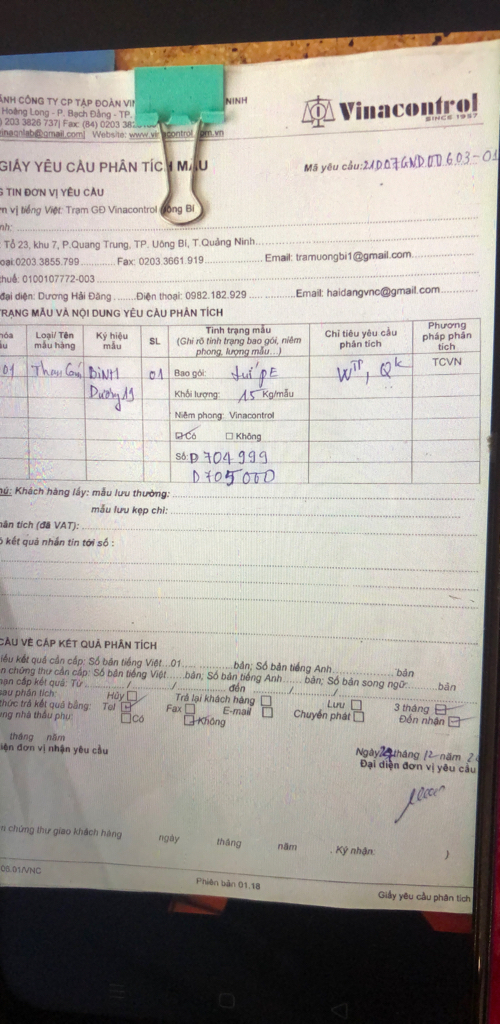 ÁNH CÔNG TY CP TẬP ĐOÀN NINH
Hoàng Long - P. Bạch Đằng - TP.
203 3826 737| Fax: (84) 0203
@gmail.com| Website: www.vinacontrol.com.vn
Vinacontrol
SINCE 1957
GIẤY YÊU CẦU PHÂN TÍCH MẪU
Mã yêu cầu: 21D07GND00603-01
TIN ĐƠN VỊ YÊU CẦU
vị tiếng Việt: Trạm GĐ Vinacontrol Uông Bí
: Tổ 23, khu 7, P.Quang Trung, TP. Uông Bí, T.Quảng Ninh
0203 3855.799 Fax: 0203 3661.919 Email: tramuongbi1@gmail.com
thuế: 0100107772-003
đại diện: Dương Hải Đăng Điện thoại: 0982.182.929 Email: haidangvnc@gmail.com
TRẠNG MẪU VÀ NỘI DUNG YÊU CẦU PHÂN TÍCH
Loại/ Tên mẫu hàng Ký hiệu mẫu SL Tình trạng mẫu (Ghi rõ tình trạng bao gói, niêm phong, lượng mẫu…) Chỉ tiêu yêu cầu phân tích Phương pháp phân tích
01 Than BÌNH 01 Bao gói: túi PE W, Q TCVN
Dương 19 Khối lượng: 15 Kg/mẫu
Niêm phong: Vinacontrol
Có Không
Số: D704999
D705000
Khách hàng lấy: mẫu lưu thường:
mẫu lưu kẹp chì:
tích (đã VAT):
kết quả nhắn tin tới số :
CẦU VỀ CẤP KẾT QUẢ PHÂN TÍCH
kết quả cần cấp: Số bản tiếng Việt...01 bản; Số bản tiếng Anh bản
chứng thư cần cấp: Số bản tiếng Việt bản; Số bản tiếng Anh bản; Số bản song ngữ bản
cấp kết quả: Từ / / đến / /
phân tích: Hủy Trả lại khách hàng Lưu 3 tháng
thức trả kết quả bằng: Tel Fax E-mail Chuyển phát Đến nhận
nhà thầu phụ: Có Không
tháng năm
diện đơn vị nhận yêu cầu
Ngày tháng 12 năm
Đại diện đơn vị yêu cầu
chứng thư giao khách hàng ngày tháng năm . Ký nhận: )
01/VNC
Phiên bản 01.18
Giấy yêu cầu phân tích